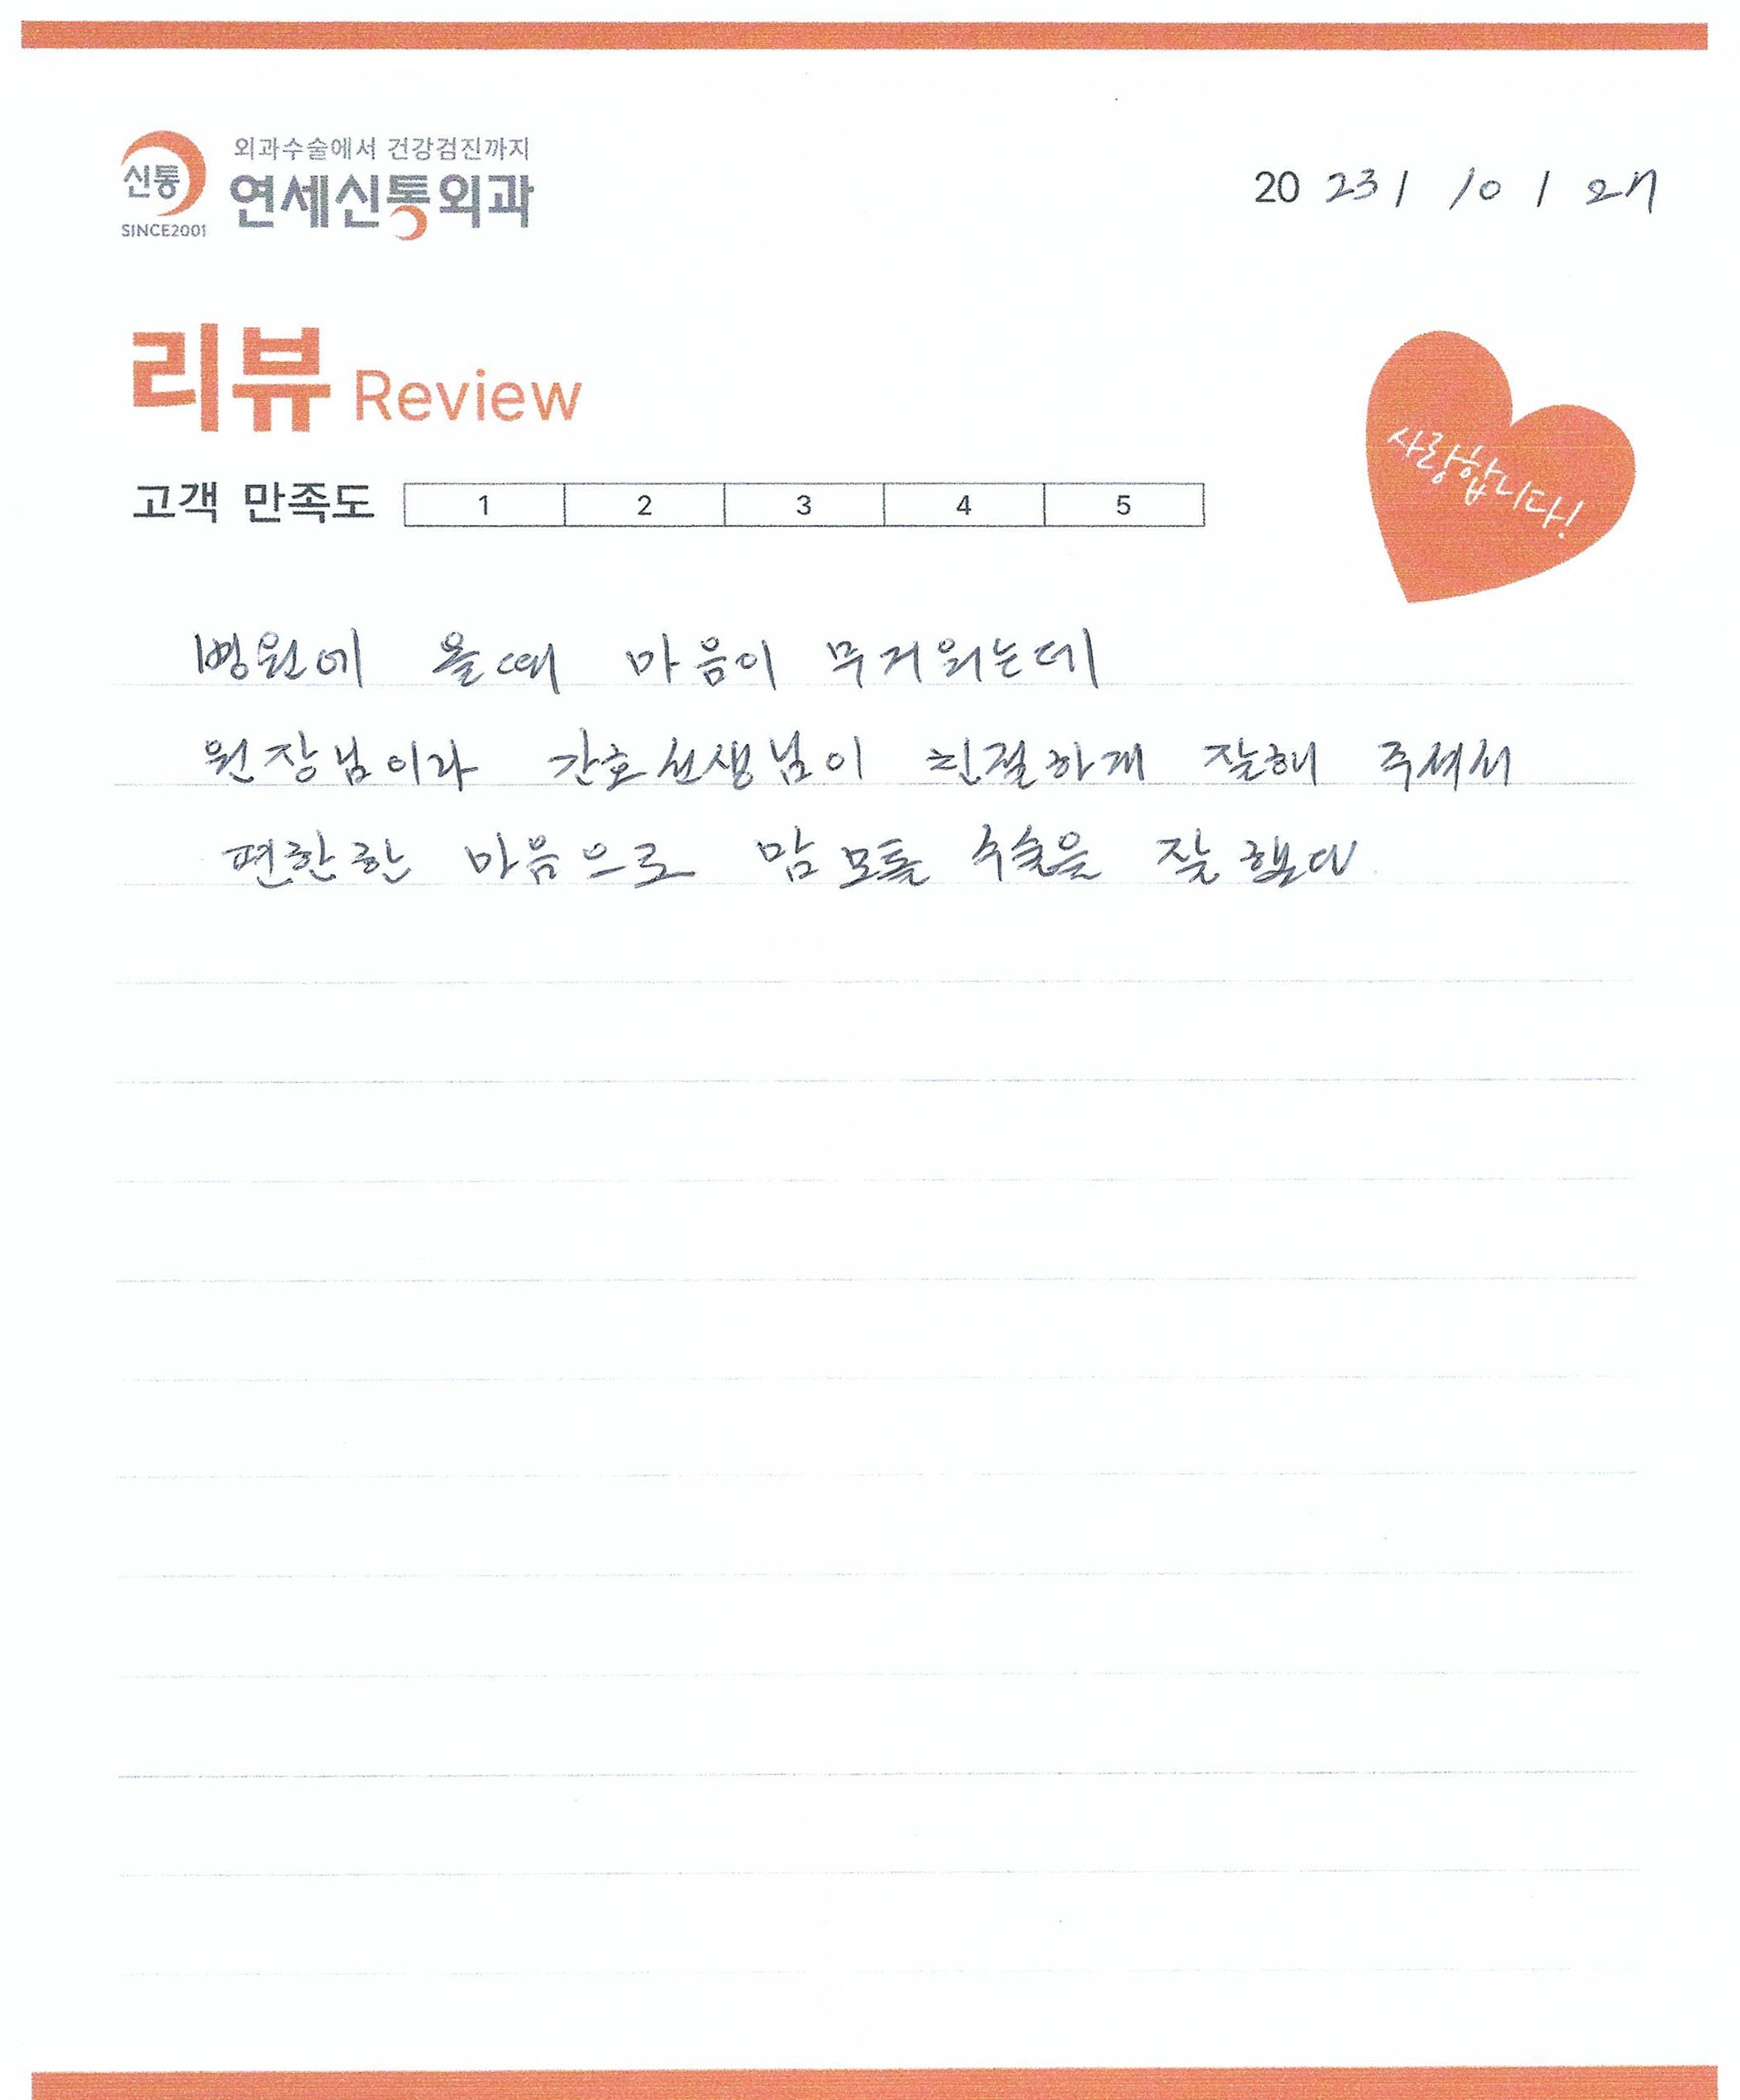 외과수술에서 건강검진까지
신통 연세신통외과
SINCE2001
20 23 / 10 / 27
리뷰 Review
사랑합니다!
고객 만족도 1 2 3 4 5
병원에 올때 마음이 무거워는데
원장님이라 간호선생님이 친절하게 잘해 주셔서
편한한 마음으로 맘모톰 수술을 잘했다